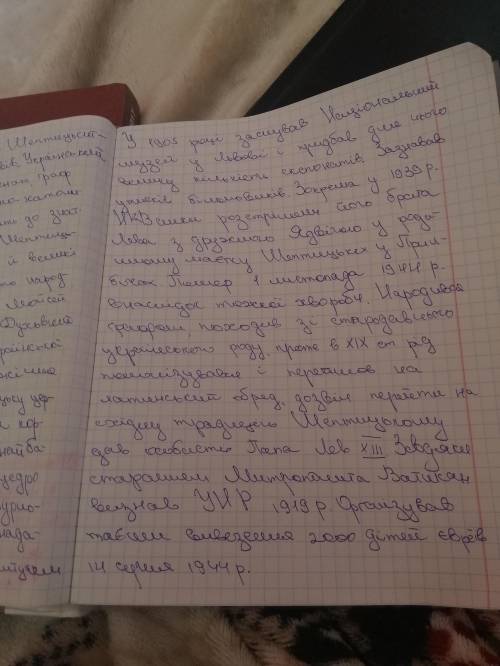 Шептицький-
Український
граф
но-католи
Шептиць-
й великі
то народ-
Мойсей
Духовний
країнської
У 1905 році заснував Національний
музей у Львові і придбав для нього
велику кількість експонатів. Зазнавав
утисків більшовиків. Зокрема у 1939 р.
НКВсники розстріляли його брата
Лева з дружиною Ядвігою у родо-
вому маєтку Шептицьких у Прил-
бічах. Помер 1 листопада 1944 р.
внаслідок тяжкої хвороби. Народився
графом, походив зі стародавнього
українського роду, проте в XIX ст рід
полонізувався і перейшов на
латинський обряд, дозвіл перейти на
східну традицію Шептицькому
дав особисто Папа Лев XIII Завдяки
старанням Митрополита Ватикан
визнав УНР 1919 р. Організував
таємне вивезення 2000 дітей євреїв
14 серпня 1944 р.